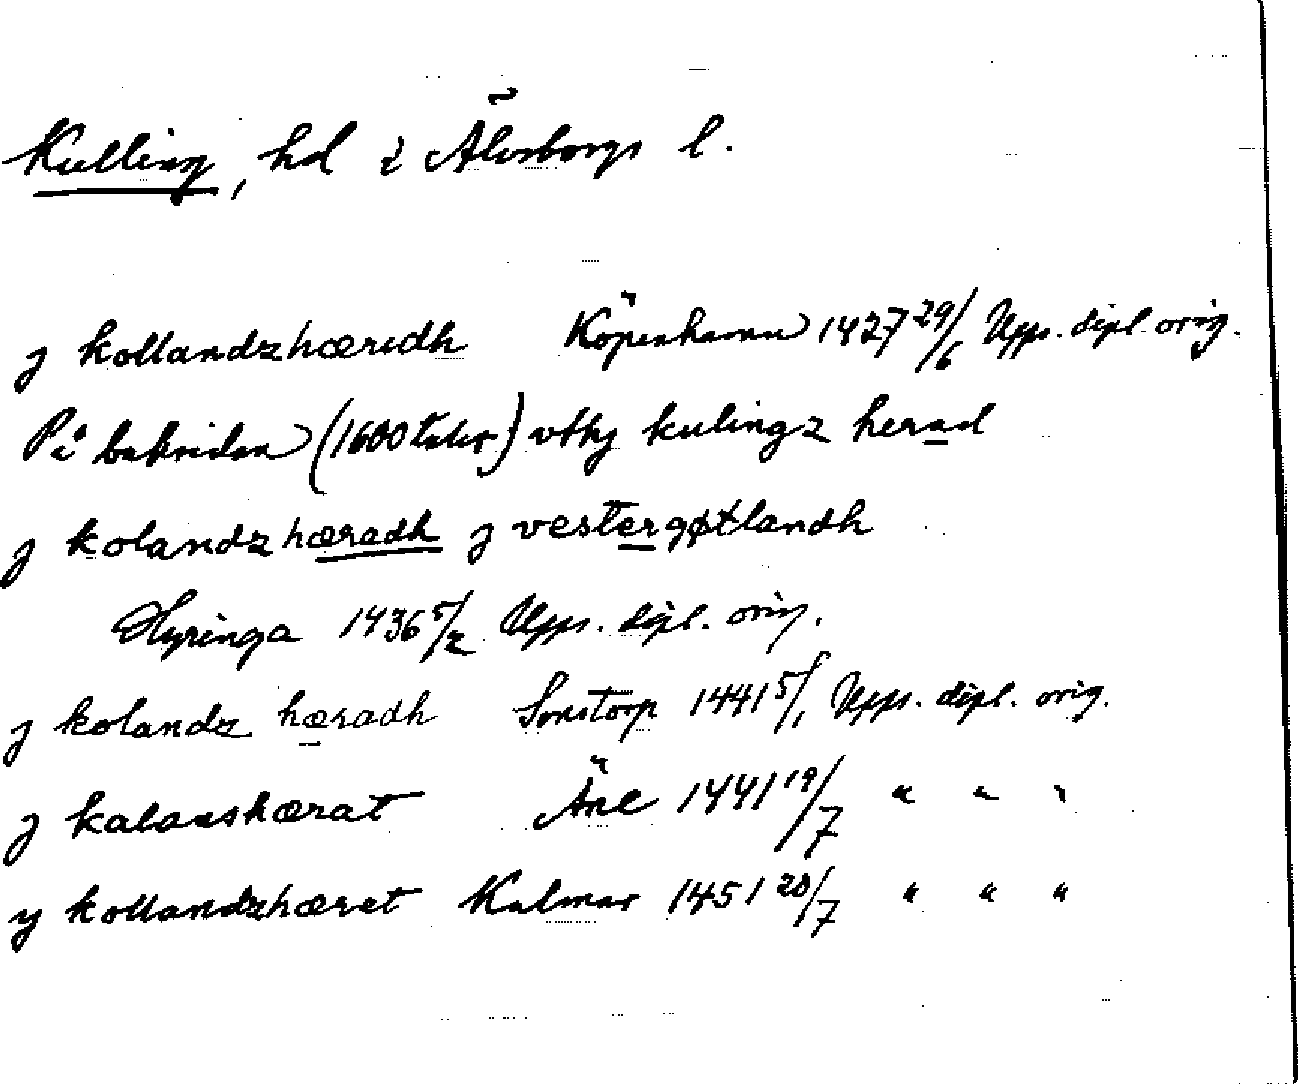 Kulling, hd i Älvsborgs l.
j kollandzhæredh Köpenhamn 1427 29/6 Upps. dipl. orig.
På baksidan (1600talet) vthj kulingz herad
j kolandzhæradh j vestergøtlandh
Hyringa 1436 5/2 Upps. dipl. orig.
j kolandz hæradh Sonstorp 1441 5/1 Upps. dipl. orig.
j kalanshærat Äne 1441 19/7 " " "
y kollandzhæret Kalmar 1451 20/7 " " "